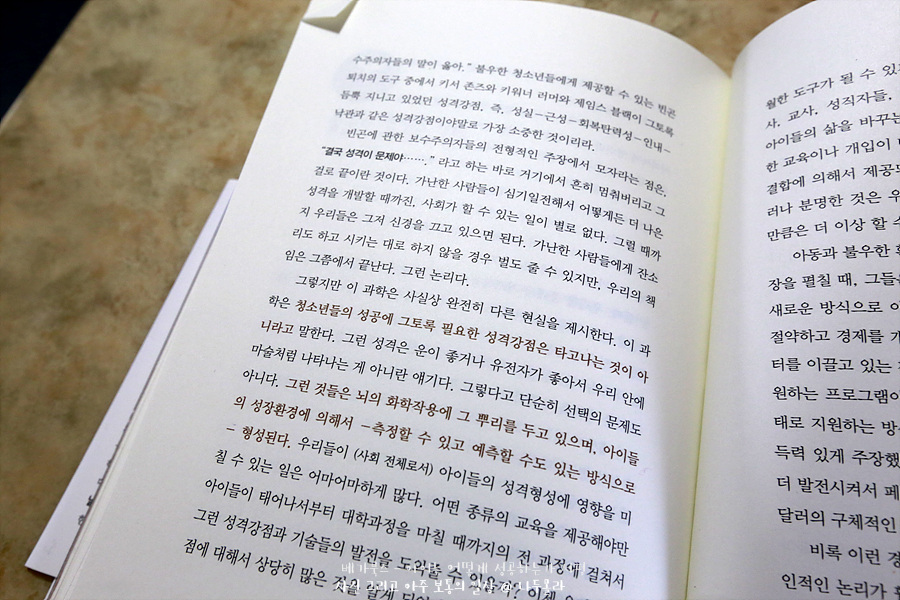 수주의자들의 말이 옳아." 불우한 청소년들에게 제공할 수 있는 빈곤
퇴치의 도구 중에서 키서 존즈와 키워너 러머와 제임스 블랙이 그토록
듬뿍 지니고 있었던 성격강점, 즉, 성실–근성–회복탄력성–인내–
낙관과 같은 성격강점이야말로 가장 소중한 것이리라.
빈곤에 관한 보수주의자들의 전형적인 주장에서 모자라는 점은,
"결국 성격이 문제야……." 라고 하는 바로 거기에서 흔히 멈춰버리고 그
걸로 끝이란 것이다. 가난한 사람들이 심기일전해서 어떻게든 더 나은
성격을 개발할 때까진, 사회가 할 수 있는 일이 별로 없다. 그럴 때까
지 우리들은 그저 신경을 끄고 있으면 된다. 가난한 사람들에게 잔소
리도 하고 시키는 대로 하지 않을 경우 벌도 줄 수 있지만, 우리의 책
임은 그쯤에서 끝난다. 그런 논리다.
그렇지만 이 과학은 사실상 완전히 다른 현실을 제시한다. 이 과
학은 청소년들의 성공에 그토록 필요한 성격강점은 타고나는 것이 아
니라고 말한다. 그런 성격은 운이 좋거나 유전자가 좋아서 우리 안에
마술처럼 나타나는 게 아니란 얘기다. 그렇다고 단순히 선택의 문제도
아니다. 그런 것들은 뇌의 화학작용에 그 뿌리를 두고 있으며, 아이들
의 성장환경에 의해서 –측정할 수 있고 예측할 수도 있는 방식으로
– 형성된다. 우리들이 (사회 전체로서) 아이들의 성격형성에 영향을 미
칠 수 있는 일은 어마어마하게 많다. 어떤 종류의 교육을 제공해야만
아이들이 태어나서부터 대학과정을 마칠 때까지의 전 과정에 걸쳐서
그런 성격강점과 기술들의 발전을 도와줄 수 있을까? 이제
점에 대해서 상당히 많은 것을 알게
월한 도구가 될 수 있
사, 교사, 성직자들,
아이들의 삶을 바꾸는
한 교육이나 개입이
결합에 의해서 제공되
러나 분명한 것은 우
만큼은 더 이상 할 수
아동과 불우한
장을 펼칠 때, 그들은
새로운 방식으로 이
절약하고 경제를 개
터를 이끌고 있는
원하는 프로그램이
태로 지원하는 방식
득력 있게 주장했
더 발전시켜서 페
달러의 구체적인
비록 이런 경
인적인 논리가
어떻게 성공하는가
그리고 아주 보통의 일상 @